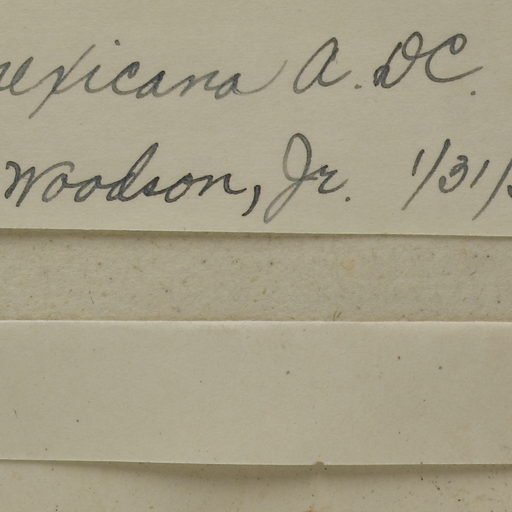 mexicana A. DC.
Woodson, Jr. 1/31/